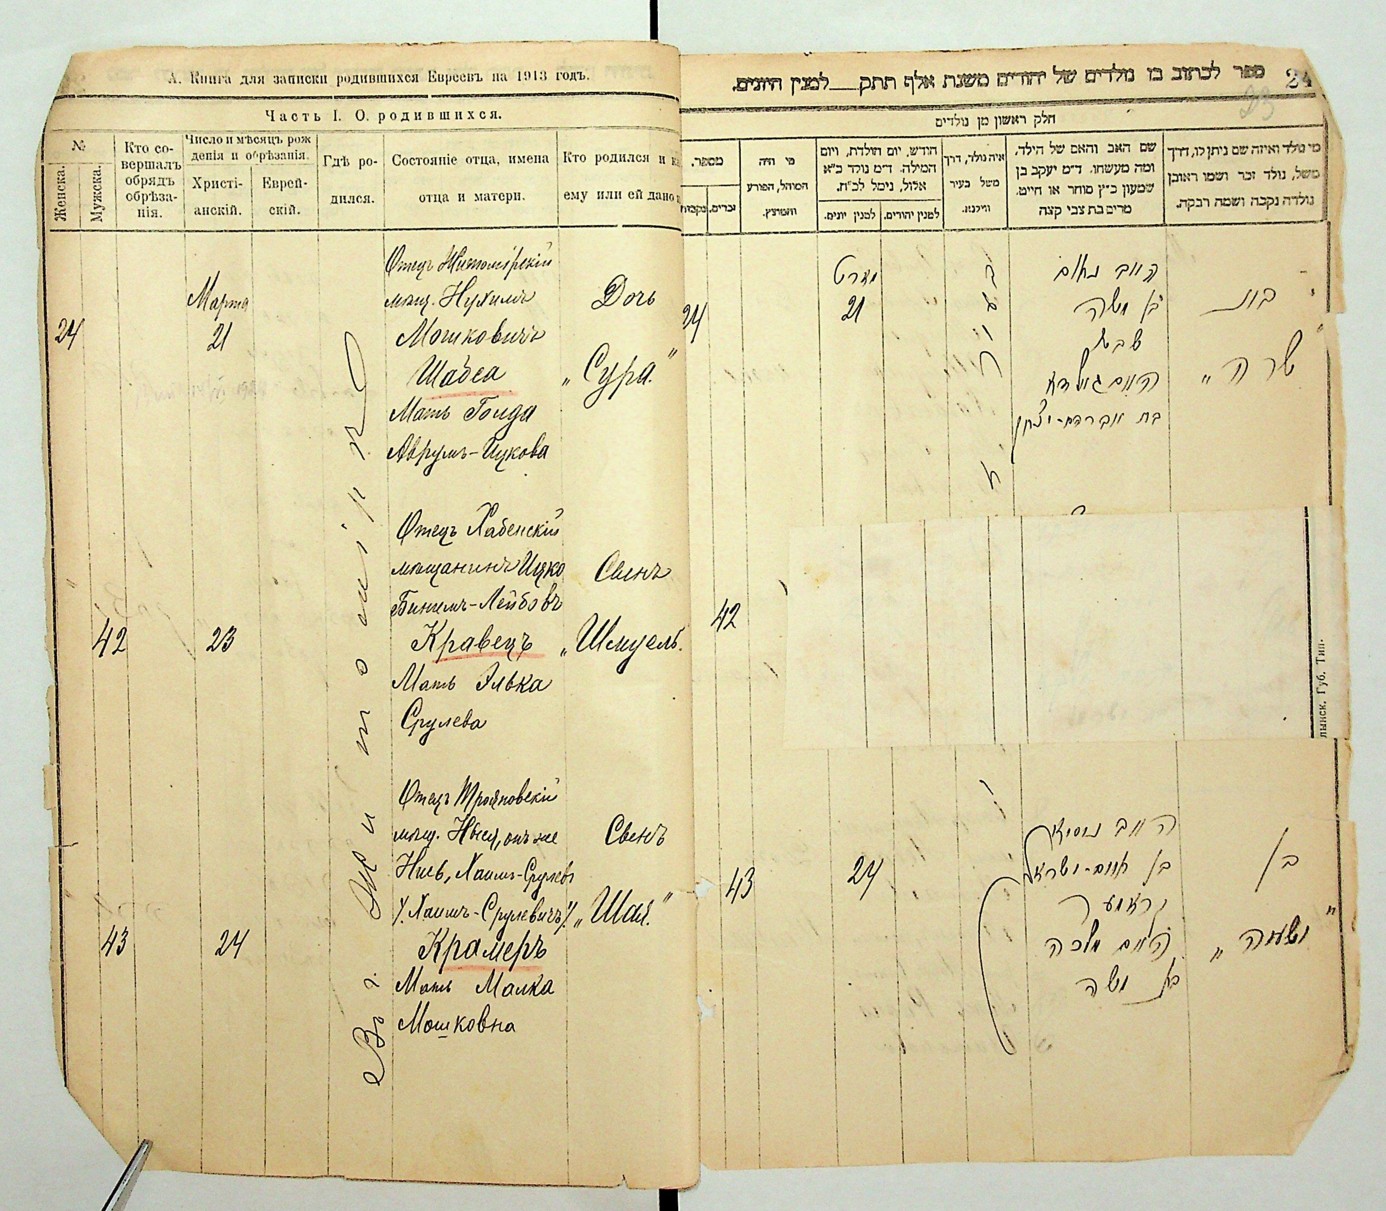 А. Книга для записки родившихся Евреевъ на 1913 годъ.
Часть I. О. родившихся.
№
Женска.
Мужска.
Кто со-
вершалъ
обрядъ
обрѣза-
нія.
Число и мѣсяцъ рож
денія и обрѣзанія.
Христі-
анскій.
Еврей-
скій.
Гдѣ ро-
дился.
Состояніе отца, имена
отца и матери.
Кто родился и
ему или ей дано
24
Марта
21
Отецъ Житомірскій
мѣщ. Нухимъ
Мошковичъ
Шабса
Мать Голда
Аврумъ-Ицкова
Дочь
„Сура."
Въ г. Житомірѣ
42
23
Отецъ Хабенскій
мѣщанинъ Ицко
Бинемъ-Лейбовъ
Кравецъ
Мать Элька
Срулева
Сынъ
„Шмуель.
43
24
Отецъ Трояновскій
мѣщ. онъ же
Хаимъ-Срулевъ
Хаимъ-Срулевичъ
Крамеръ
Мать Малка
Мошковна
Сынъ
„Шая."
ספר לכתוב בו נולדים של יהודים משנת אלף תתק ־ למנין היונים.
24
23
חלק ראשון מן נולדים
מספר.
נקבות
זכרים.
מי היה
המוהל, הפורע
והמוצץ.
חודש, יום הולדת, ויום
המילה. ד״מ נולד כ״א
אלול, נימל לכ״ח.
למנין יונים.
למנין יהודים.
איה נולד, דרך
משל בעיר
ווילנא.
שם האב והאם של הילד,
ומה מעשהו. ד״מ יעקב בן
שמעון כ״ץ סוחר או חייט,
מרים בת צבי קצה
מי נולד ואיזה שם ניתן לו, דרך
משל, נולד זכר ושמו ראובן
נולדה נקבה ושמה רבקה.
24
מארט
21
האב נחום
בן משה
שבסא
האם גאלדא
בת אברהם-יצחק
בת
„שרה"
42
43
24
האב
בן חיים-ישראל
קראמער
האם מלכה
בת משה
בן
„ישעיה"
лынск. Губ. Тип.